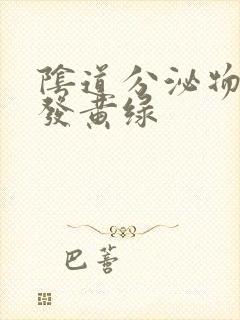 陰道分泌物
發黃绿
巴蒼